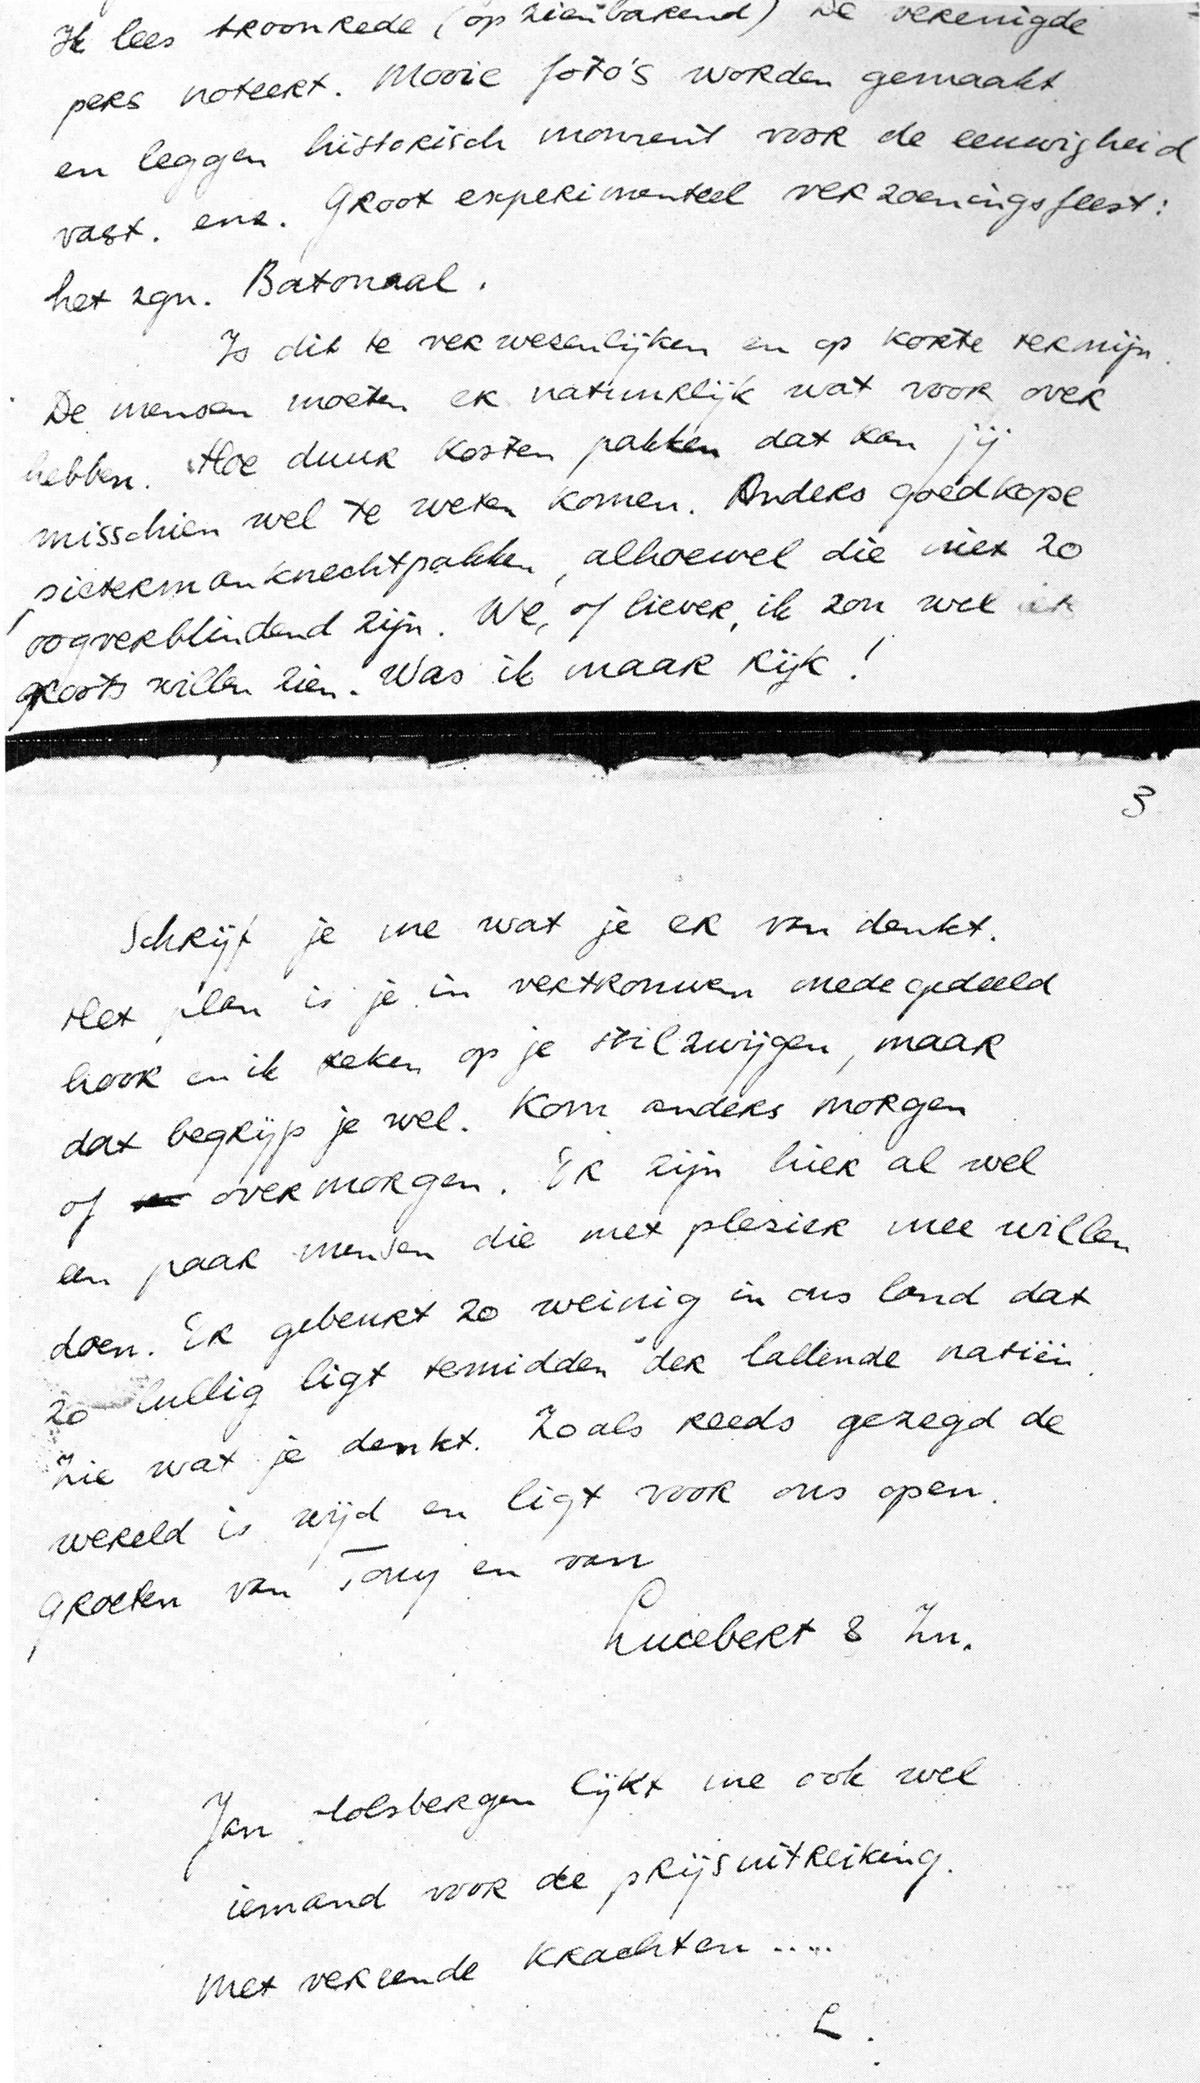 Ik lees troonrede (opzienbarend) De verenigde
pers noteert. Mooie foto's worden gemaakt
en leggen historisch moment voor de eeuwigheid
vast. enz. Groot experimenteel verzoeningsfeest:
het zgn. Batonaal.
Is dit te verwezenlijken en op korte termijn.
De mensen moeten er natuurlijk wat voor over
hebben. Hoe duur kosten pakken dat kan jij
misschien wel te weten komen. Anders goedkope
pietermanknechtpakken, alhoewel die niet zo
oogverblindend zijn. We, of liever, ik zou wel iets
groots willen zien. Was ik maar rijk!
3
Schrijf je me wat je er van denkt.
Het plan is je in vertrouwen medegedeeld
hoor en ik reken op je stilzwijgen, maar
dat begrijp je wel. Kom anders morgen
of overmorgen. Er zijn hier al wel
een paar mensen die met plezier mee willen
doen. Er gebeurt zo weinig in ons land dat
zo lullig ligt temidden der lallende natiën
Zie wat je denkt. Zoals reeds gezegd de
wereld is wijd en ligt voor ons open.
Groeten van Tony en van
Lucebert & Zn.
Jan lijkt me ook wel
iemand voor de prijsuitreiking.
Met vereende krachten .....
L.